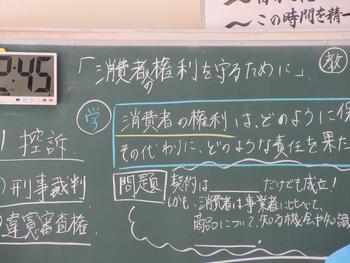 〜この時間を精一
:45
「消費者の権利を守るために」
教
学
消費者の権利は、どのように保
その代わりに、どのような責任を果た
控訴
刑事裁判
違憲審査権
問題
契約は______だけでも成立!
しかも、消費者は事業者に比べて、
商品について、知る機会や知識